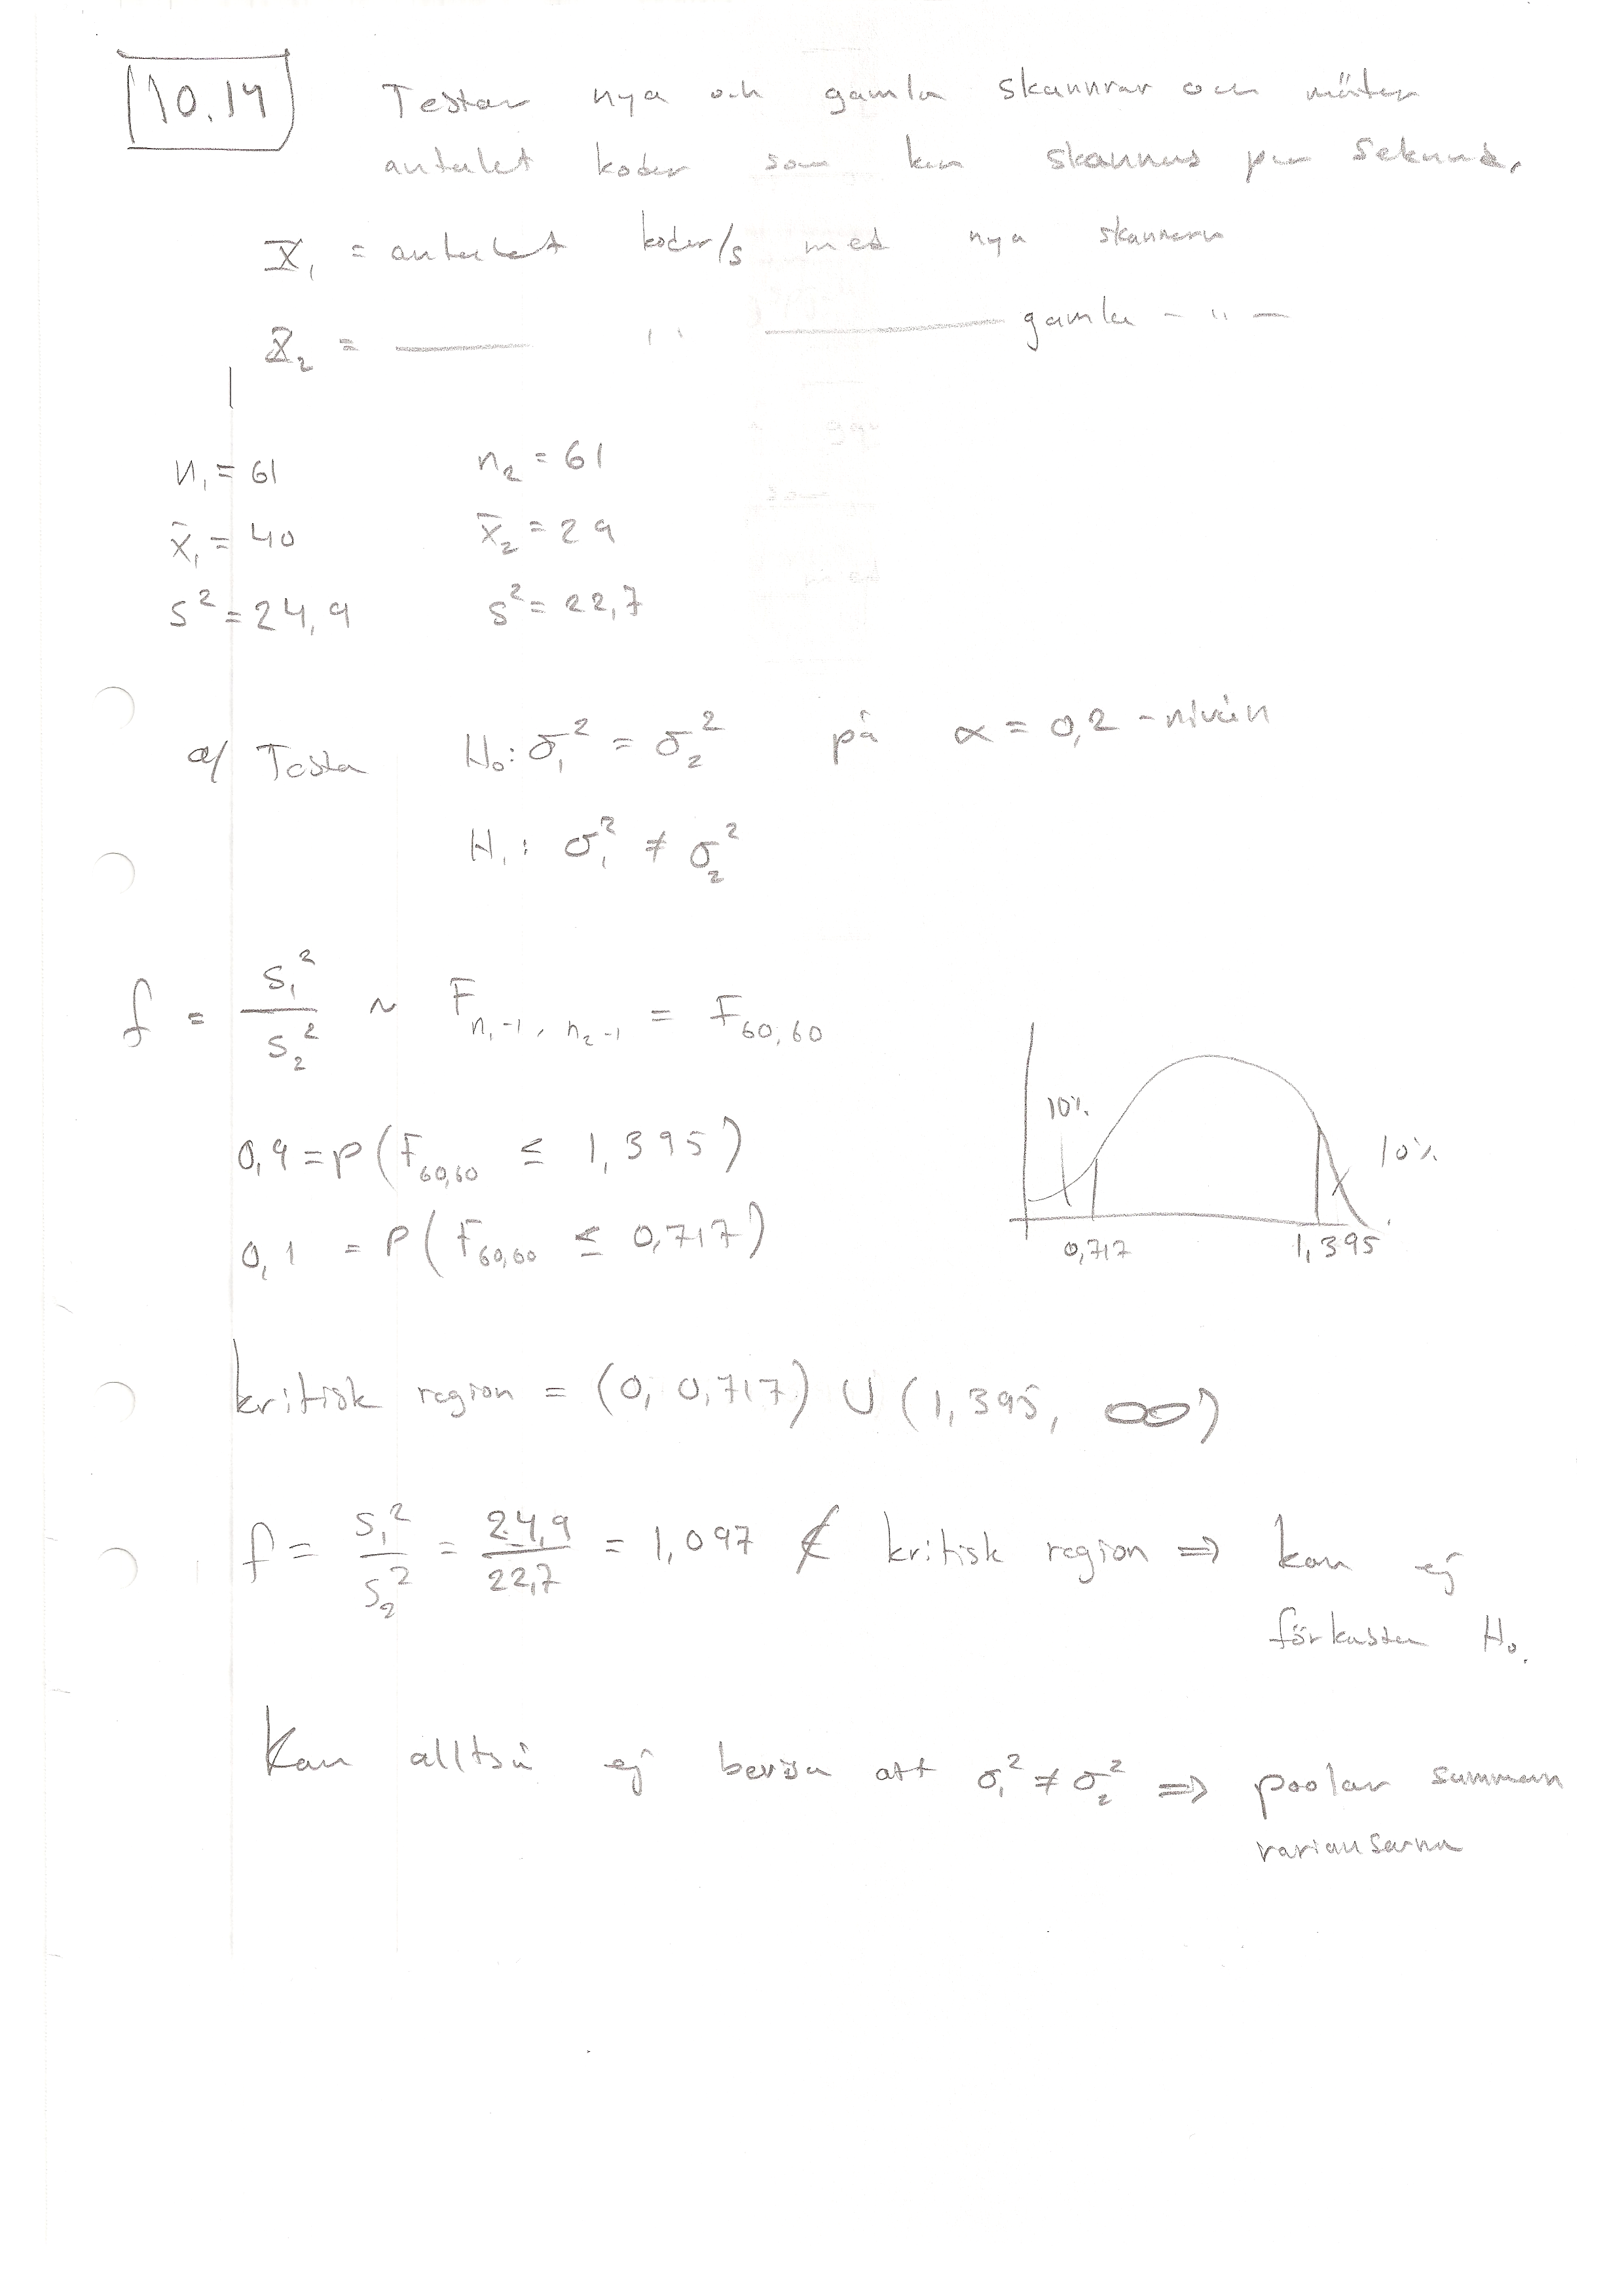 10.14
Testar nya och gamla skannrar och mäter
antalet koder som kan skannas per sekund.
X₁ = antalet koder/s med nya skannern
X₂ = —— " —— gamla - " -
n₁ = 61 n₂ = 61
x̄₁ = 40 x̄₂ = 29
s² = 24,9 s² = 22,7
a/ Testa H₀: σ₁² = σ₂² på α = 0,2 -nivån
H₁: σ₁² ≠ σ₂²
f = s₁²/s₂² ~ F n₁-1, n₂-1 = F 60,60
0,9 = P(F60,60 ≤ 1,395)
0,1 = P(F60,60 ≤ 0,717)
10% 10%
0,717 1,395
kritisk region = (0, 0,717) ∪ (1,395, ∞)
f = s₁²/s₂² = 24,9/22,7 = 1,097 ∉ kritisk region ⇒ kan ej
förkasta H₀.
Kan alltså ej bevisa att σ₁² ≠ σ₂² ⇒ poolar samman
varianserna